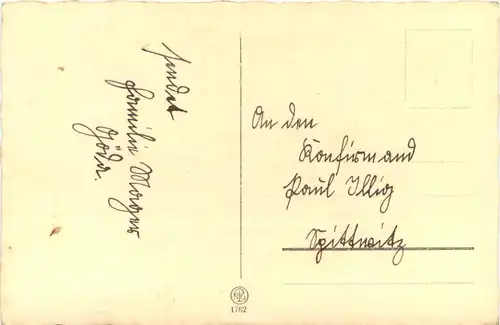 sendet
Familie Mager
Göda.
An den
Konfirmand
Paul Illig
Spittwitz
1762